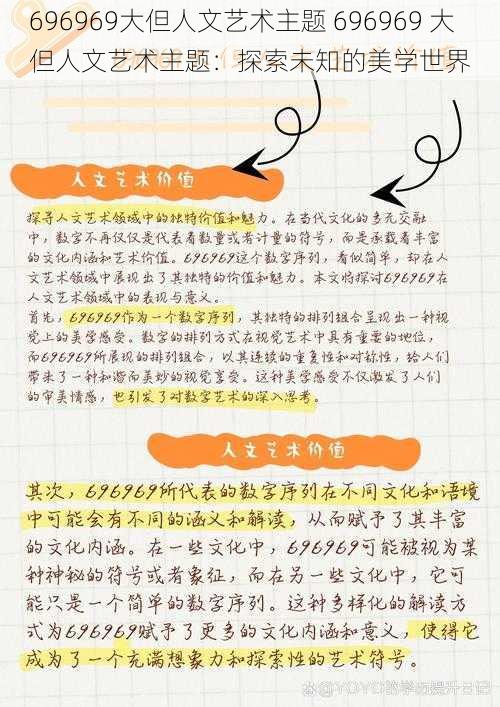 696969大但人文艺术主题 696969 大
但人文艺术主题：探索未知的美学世界
人文艺术价值
探寻人文艺术领域中的独特价值和魅力。在当代文化的多元交融
中，数字不再仅仅是代表着数量或者计量的符号，而是承载着丰富
的文化内涵和艺术价值。696969这个数字序列，看似简单，却在人
文艺术领域中展现出了其独特的价值和魅力。本文将探讨696969在
人文艺术领域中的表现与意义。
首先，696969作为一个数字序列，其独特的排列组合呈现出一种视
觉上的美学感受。数字的排列方式在视觉艺术中具有重要的地位，
而696969所展现的排列组合，以其连续的重复性和对称性，给人们
带来了一种和谐而美妙的视觉享受。这种美学感受不仅激发了人们
的审美情感，也引发了对数字艺术的深入思考。
人文艺术价值
其次，696969所代表的数字序列在不同文化和语境
中可能会有不同的涵义和解读，从而赋予了其丰富
的文化内涵。在一些文化中，696969可能被视为某
种神秘的符号或者象征，而在另一些文化中，它可
能只是一个简单的数字序列。这种多样化的解读方
式为696969赋予了更多的文化内涵和意义，使得它
成为了一个充满想象力和探索性的艺术符号。
@YOYO的学历提升日记